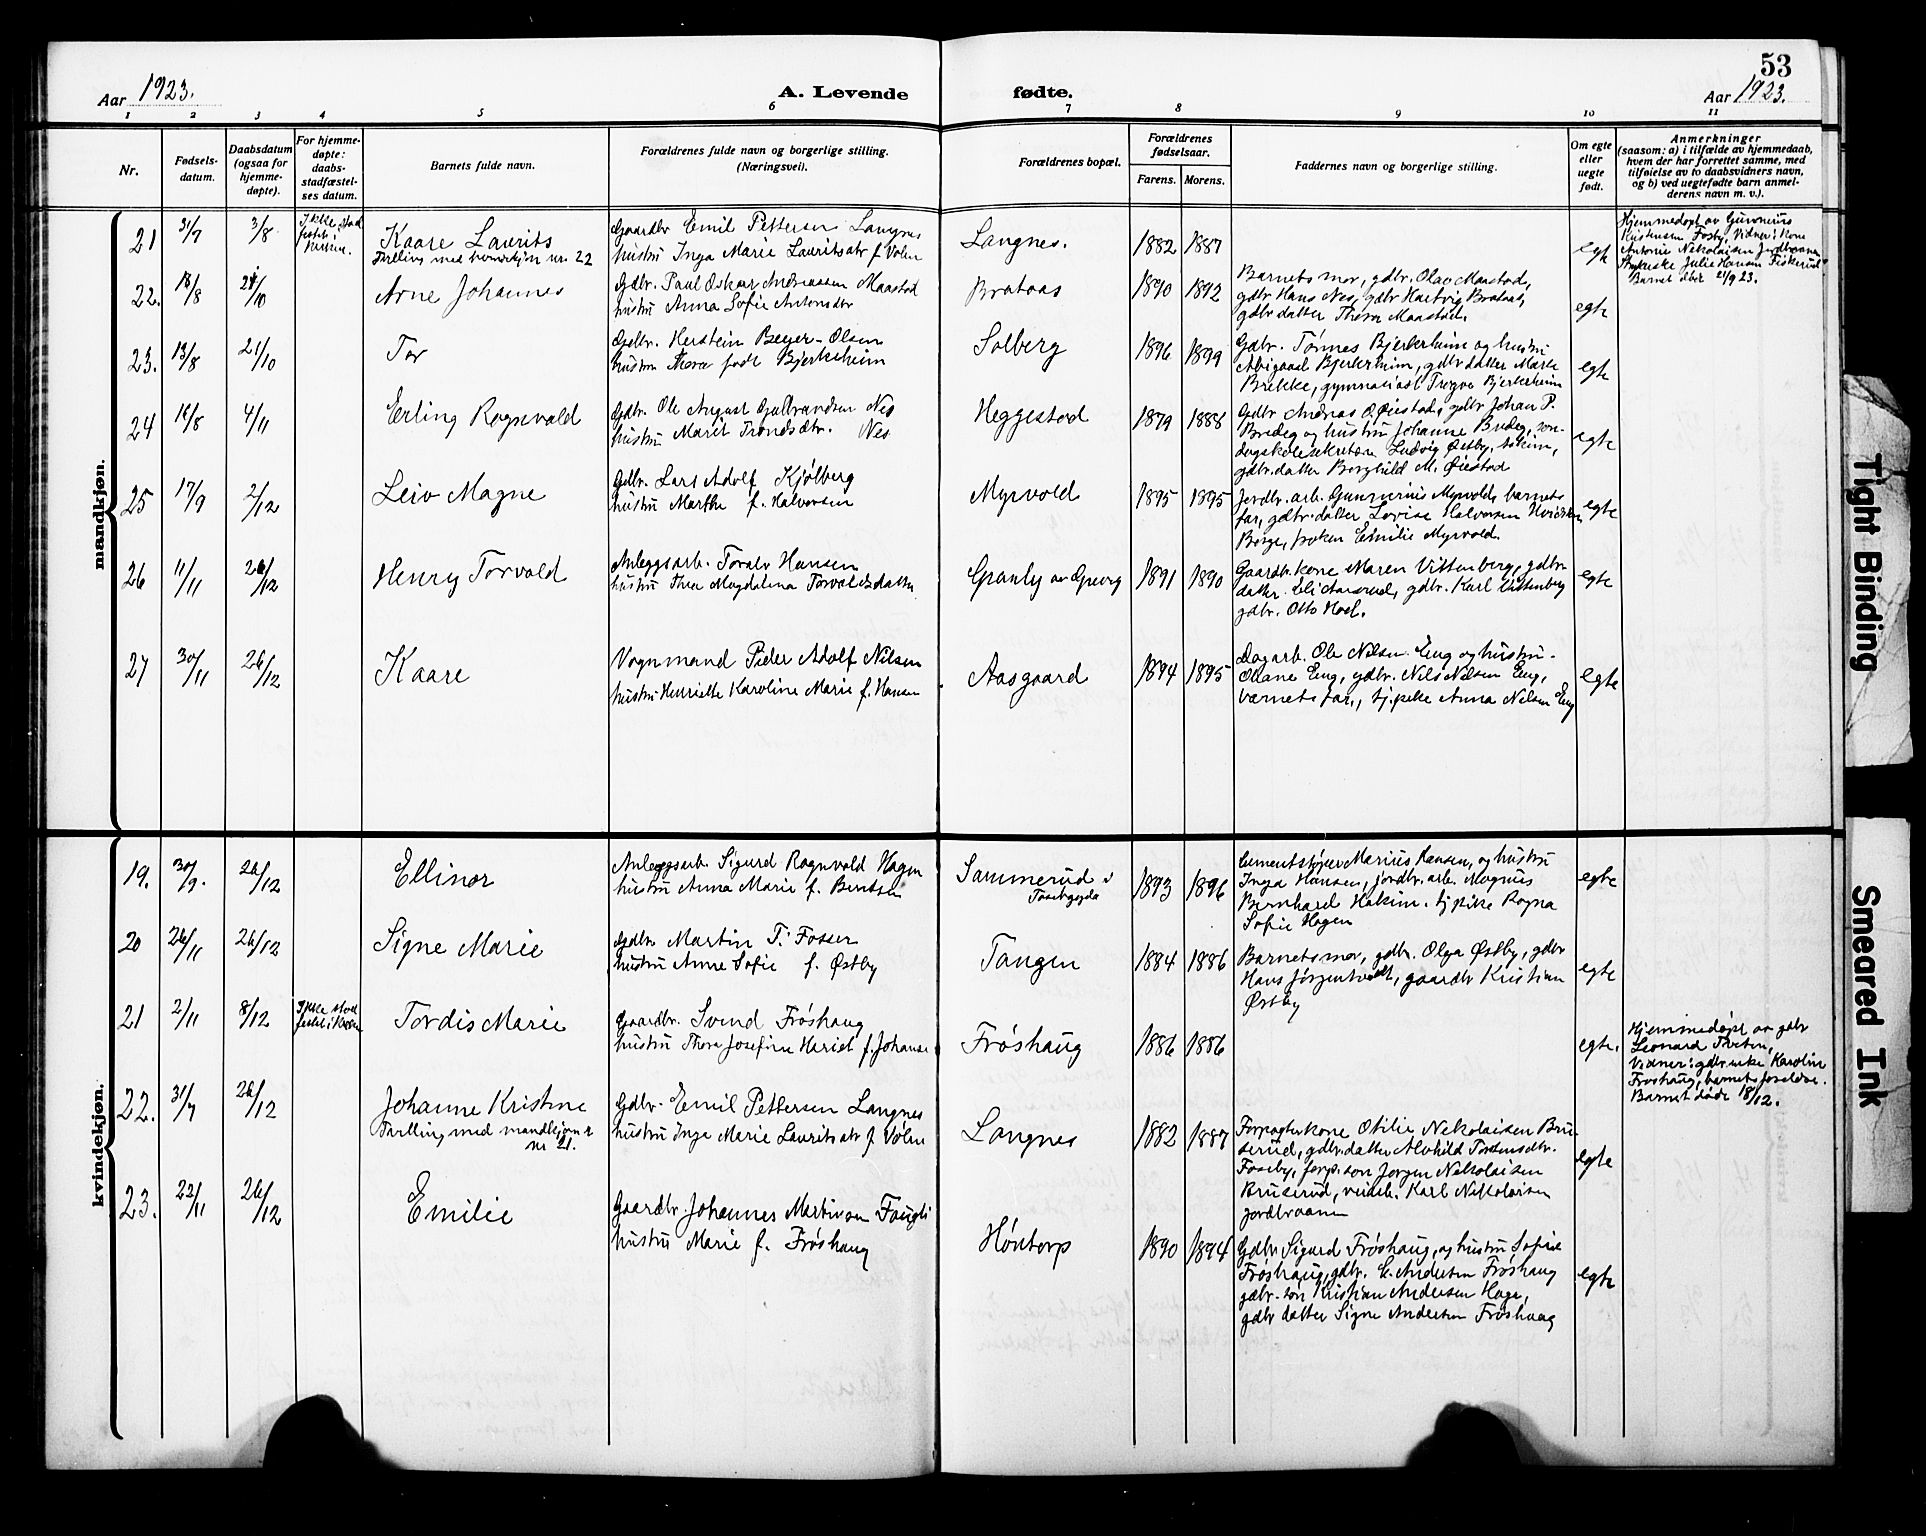 53
Aar 1923.
A. Levende
fødte.
Aar 1923.
1 2 3 4 5 6 7 8 9 10 11
Nr.
Fødsels-
datum.
Daabsdatum
(ogsaa for
hjemme-
døpte).
For hjemme-
døpte:
daabs-
stadfæstel-
ses datum.
Barnets fulde navn.
Forældrenes fulde navn og borgerlige stilling.
(Næringsvei).
Forældrenes bopæl.
Forældrenes
fødselsaar.
Farens. Morens.
Faddernes navn og borgerlige stilling.
Om egte
eller
uegte
født.
Anmerkninger
(saasom: a) i tilfælde av hjemmedaab,
hvem der har forrettet samme, med
tilføielse av to daabsvidners navn,
og b) ved uegtefødte barn anmel-
derens navn m. v.).
mandkjøn.
21
31/7
3/8
Ikke stad
festet i
kirken.
Kaare Laurits
Tvilling med kvindekjøn nr. 22
Gaardbr Emil Pettersen Langnes
hustru Inga Marie Lauritsdtr f. Volen
Langnes.
1882 1887
egte
Hjemmedøpt av Gunnerius
Kristensen Fosby, Vidner: Kone
Antonie Nikolaisen Jordbraaen
Julie Hansen Fiskerud
Barnet død 21/9 23.
22.
18/8
21/10
Arne Johannes
Gdbr. Paul Oskar Andreassen Maastad
hustru Anna Sofie Antonsdtr
Brataas
1890 1892
Barnets mor, gdbr. Olav Maastad,
gdbr Hans Nes, gdbr Hartvig Brataas,
gdbr datter Thora Maastad.
egte
23.
13/8
21/10
Tor
Gdbr. Kerstein Beyer-Olsen
hustru Thora født Bjerkeheim
Solberg
1896 1899
Gdbr. Tønnes Bjerkerheim og hustru
Abigael Bjerkerheim, gdbr datter Marte
Brekke, gymnasiast Trygve Bjerkerheim
egte
24
16/8
4/11
Erling Rognvald
Gdbr. Ole August Gulbrandsen Nes
hustru Marit Trondsdtr. Nes
Heggestad
1879 1888
Gdbr Andreas O. Øiestad, gdbr Johan P.
Bredeg og hustru Johanne Bredeg, søn-
dagskolesekretær Ludvig Østby, Askim,
gdbr. datter Borghild M. Øiestad
egte
25
17/9
2/12
Leiv Magne
Gdbr. Lars Adolf Kjølberg
hustru Marthe f. Halvorsen
Myrvold
1895 1895
Jordbr. arb. Gunnerius Myrvold, barnets
far, gdbr. datter Lovise Halvorsen
Borge, frøken Emilie Myrvold.
egte
26
11/11
26/12
Henry Torvald
Anleggsarb. Toralv Hansen
hustru Thea Magdalena Torvaldsdatter
Granly av Grevig
1891 1890
Gaardbr. kone Maren Vittenberg, gdbr.
datter gdbr. Karl Vittenberg
gdbr. Otto Hoel.
egte
27
30/11
26/12
Kaare
Vognmand Peder Adolf Nilsen
hustru Henriette Karoline Marie f. Hansen
Aasgaard
1894 1895
Dagarb. Ole Nilsen Eng og hustru
Oliane Eng, gdbr. Nils Nilsen Eng,
barnets far, tj. pike Anna Nilsen Eng
egte
kvindekjøn.
19.
30/9.
26/12
Ellinor
Anleggsarb. Sigurd Rognvald Hagen
hustru Anna Marie f. Bentsen
Sammerud i
Fosebygda
1893 1896
Cementstøper Marius Hansen, og hustru
Inga Hansen, jordbr. arb. Magnus
Bernhard Hakim. tj. pike Ragna
Sofie Hagen
egte
20
26/11
26/12
Signe Marie
Gdbr Martin T. Fosser
hustru Anne Sofie f. Østby
Tangen
1884 1886
Barnets mor, gdbr. Olga Østby, gdbr
Hans Jørgentvedt, gaardbr Kristian
Østby
egte
21
2/11
8/12
Ikke stad
festet i Kirken
Tordis Marie
Gaardbr. Svend Frøshaug
hustru Thora Josefine Hariet f. Johanse
Frøshaug
1886 1886
egte.
Hjemmedøpt av gdbr
Leonard Tveten,
Vidner: gdbr. enke Karoline
Frøshaug, barnets foreldre.
Barnet døde 18/12.
22.
31/7
26/12
Johanne Kristine
Tvilling med mandkjøn
nr 21.
Gdbr. Emil Pettersen Langnes
hustru Inga Marie Lauritsdtr f. Volen
Langnes
1882 1887
Forpagterkone Otilie Nikolaisen Bru-
serud, gdbr. datter Alvhild Torstensdtr.
Foseby, forp. søn Jørgen Nikolaisen
Bruserud, Karl Nikolaisen
Jordbraaen
egte
23.
22/11
26/12
Emilie
Gaardbr. Johannes Martinsen Faugli
hustru Marie f. Frøshaug
Høntorp
1890 1894
Gdbr Sigurd Frøshaug, og hustru Sofie
Frøshaug, gdbr. E. Andersen Frøshaug
gdbr. søn Kristian Andersen Haga,
gdbr datter Signe Andersen Frøshaug
egte
Tight Binding
Smeared Ink